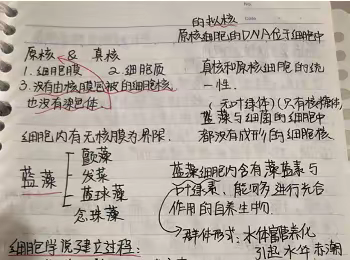 的拟核
原核细胞的DNA位于细胞中
原核 & 真核
1. 细胞膜 2. 细胞质
3. 没有由核膜包被的细胞核
也没有染色体
真核和原核细胞的统
一性.
(无叶绿体)(只有核糖体)
蓝藻与细菌的细胞中
都没有成形的细胞核
细胞内有无核膜为界限.
蓝藻
颤藻
发藻
蓝球藻
念珠藻
蓝藻细胞内含有藻蓝素与
叶绿素、能
进行光合
作用的自养生物.
群体形式:水体富营养化
引起水华 赤潮
细胞学说建立过程: